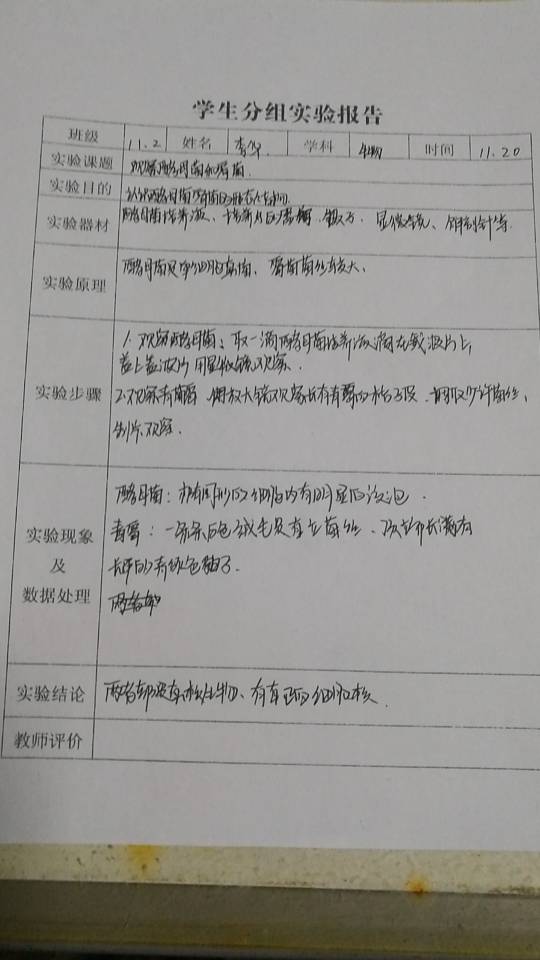 学生分组实验报告
班级 11.2 姓名 李华 学科 生物 时间 11.20
实验课题 观察酵母菌和霉菌
实验目的 认识酵母菌
实验器材 酵母菌培养液、 显微镜、解剖针等
实验原理 酵母菌是单细胞真菌、霉菌菌丝
1. 观察酵母菌：取一滴酵母菌培养液滴在载玻片上,
盖上盖玻片用显微镜观察.
实验步骤 2.观察青霉 用放大镜观察长有青霉的桔子皮
制片观察.
酵母菌: 细胞内有明显的液泡.
实验现象 青霉: 一条条白色绒毛是直立菌丝、顶部长满有
及
青绿色孢子.
数据处理 两者都
实验结论 两者都是真核生物、有真正的细胞核
教师评价